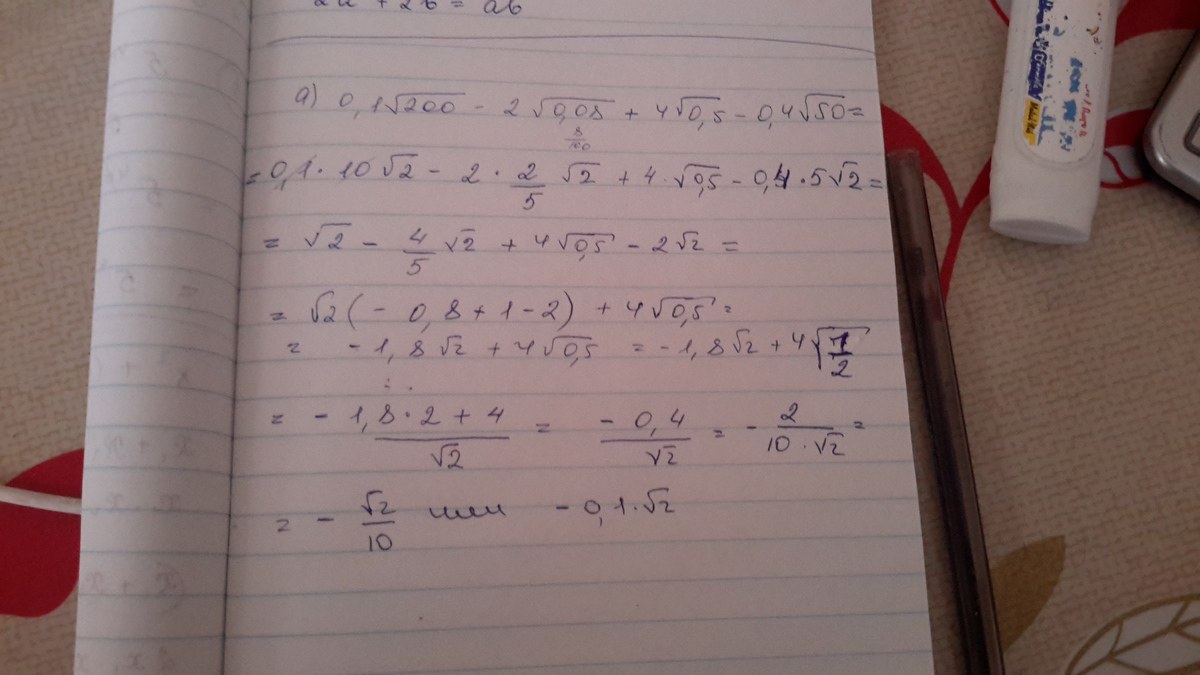 2a + 2b = ab
а) 0,1√200 - 2√0,08 + 4√0,5 - 0,4√50 =
8/100
= 0,1 · 10√2 - 2 · 2/5 √2 + 4 · √0,5 - 0,4 · 5√2 =
= √2 - 4/5 √2 + 4√0,5 - 2√2 =
= √2(- 0,8 + 1 - 2) + 4√0,5 =
= -1,8√2 + 4√0,5 = -1,8√2 + 4√1/2
= - 1,8 · 2 + 4/√2 = - 0,4/√2 = - 2/10 · √2 =
= - √2/10 или - 0,1 · √2